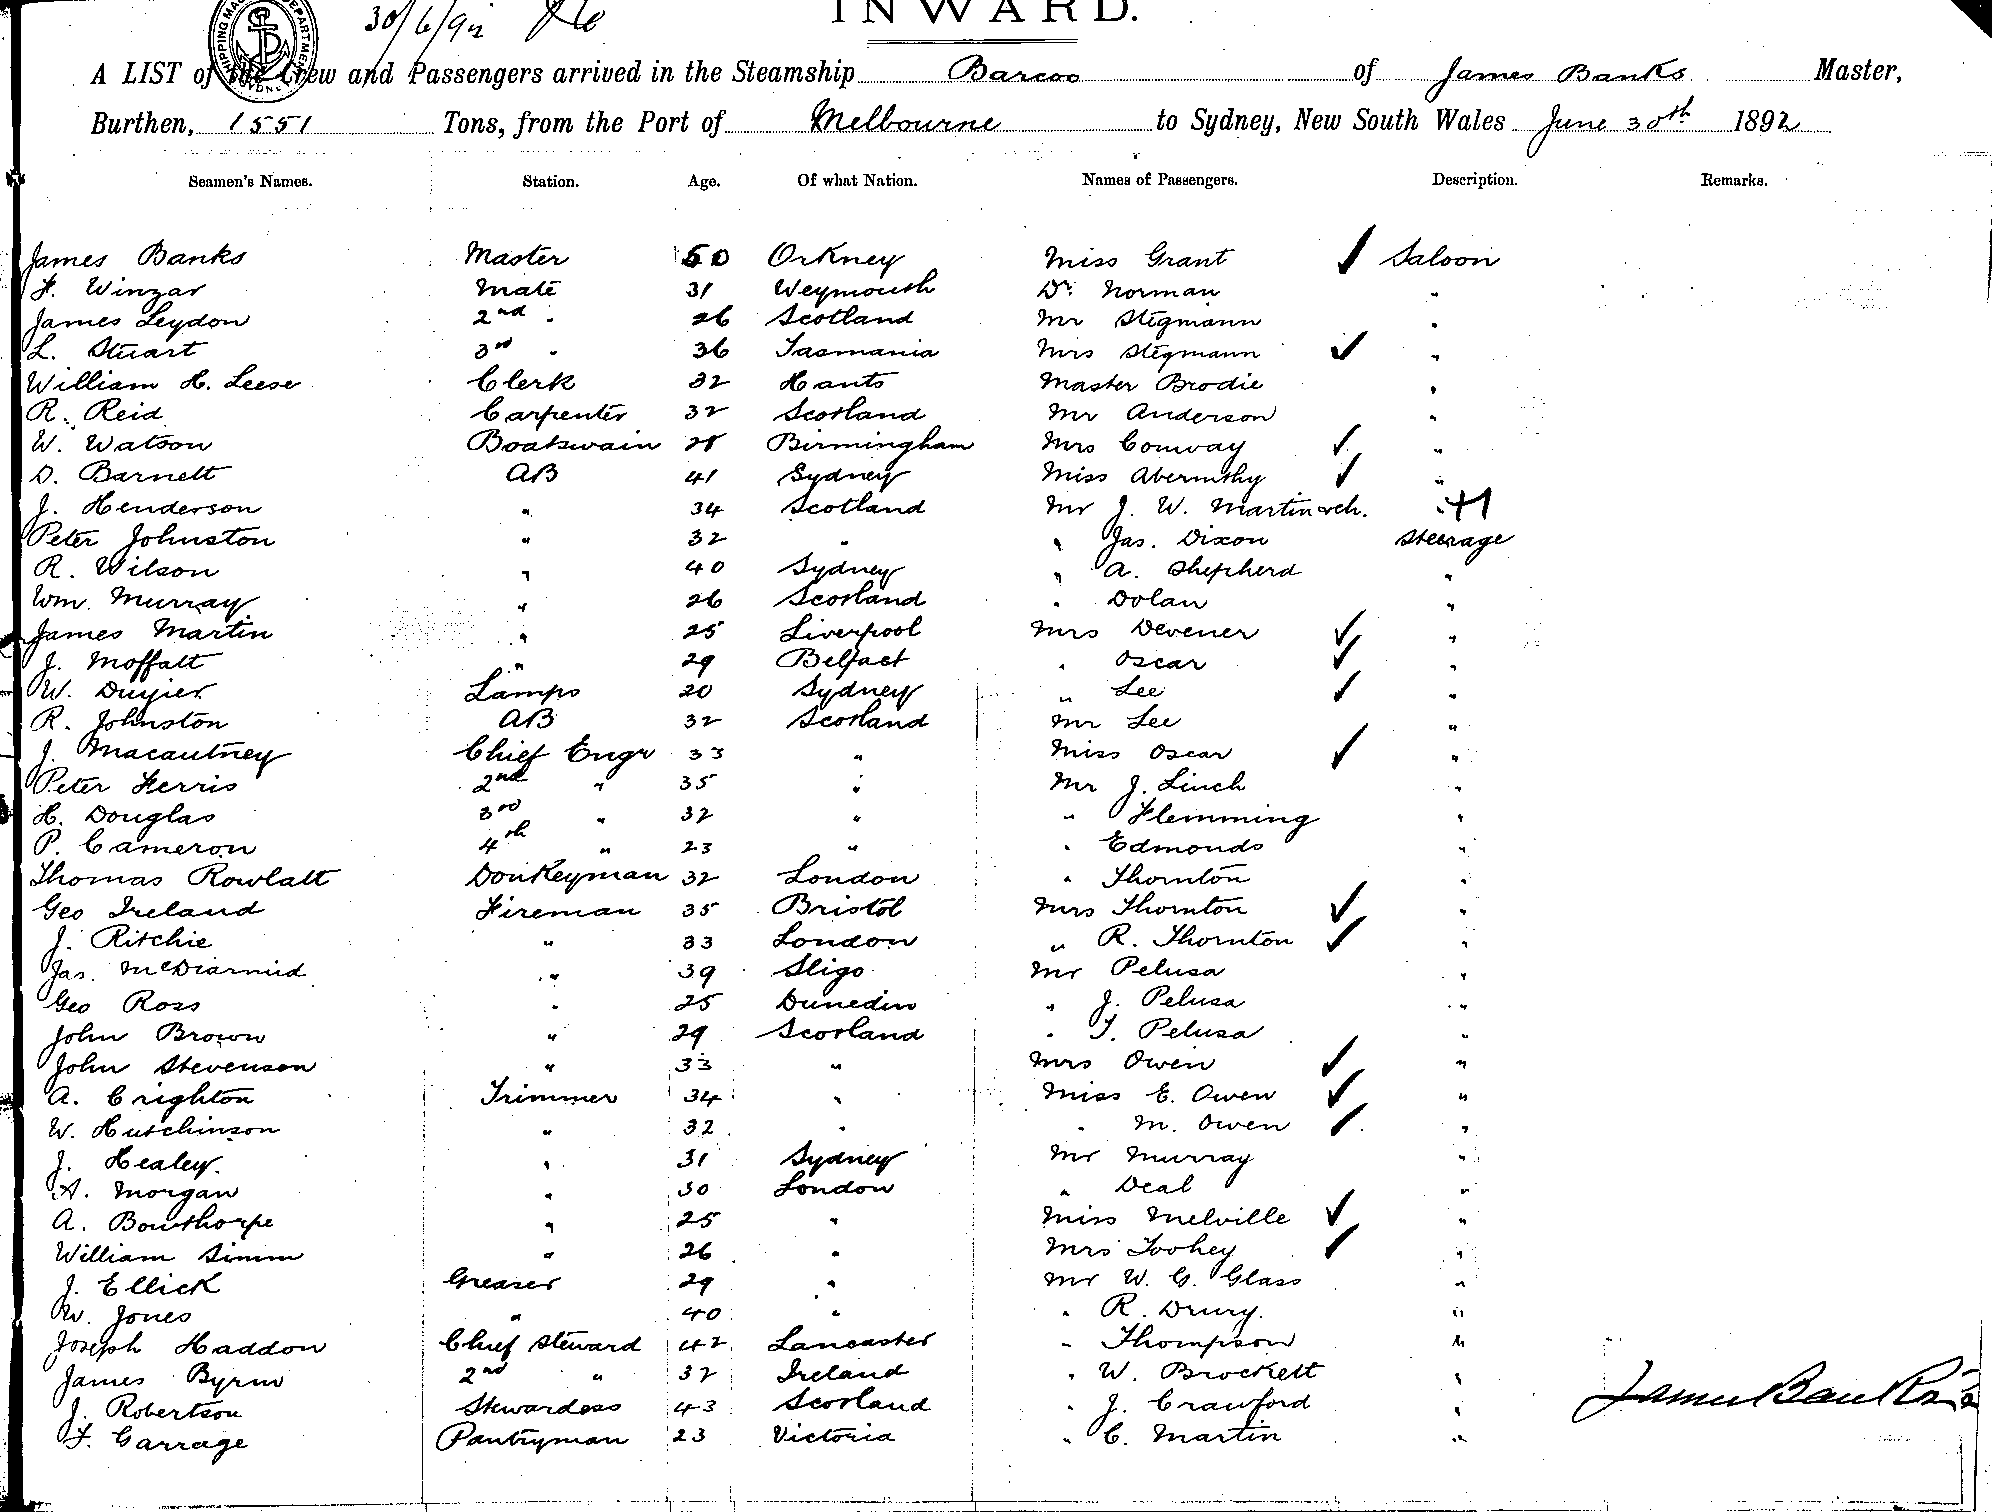 30/6/92
INWARD.
A LIST of the Crew and Passengers arrived in the Steamship Barcoo of James Banks Master,
Burthen, 1551 Tons, from the Port of Melbourne to Sydney, New South Wales June 30th 1892
Seamen's Names. Station. Age. Of what Nation. Names of Passengers. Description. Remarks.
James Banks Master 50 Orkney Miss Grant ✓ Saloon
F. Winzar Mate 31 Weymouth Dr. Norman "
James Leydon 2nd " 26 Scotland Mr Stegmann "
L. Stuart 3rd " 36 Tasmania Mrs Stegmann ✓ "
William H. Leese Clerk 32 Hants Master Brodie "
R. Reid Carpenter 32 Scotland Mr Anderson "
W. Watson Boatswain 28 Birmingham Mrs Conway ✓ "
D. Barnett AB 41 Sydney Miss Abernthy ✓ "
J. Henderson " 34 Scotland Mr J. W. Martin ch. " +1
Peter Johnston " 32 " " Jas. Dixon Steerage
R. Wilson " 40 Sydney " A. Shepherd "
Wm. Murray " 26 Scotland " Dolan "
James Martin " 25 Liverpool Mrs Devener ✓ "
J. Moffatt " 29 Belfast " Oscar ✓ "
W. Lamps 20 Sydney " Lee ✓ "
R. Johnston AB 32 Scotland Mr Lee "
J. Macautney Chief Engr 33 " Miss Oscar ✓ "
Peter Ferris 2nd " 35 " Mr J. Linch "
H. Douglas 3rd " 32 " " Flemming "
P. Cameron 4th " 23 " " Edmonds "
Thomas Rowlatt Donkeyman 32 London " Thornton "
Geo Ireland Fireman 35 Bristol Mrs Thornton ✓ "
J. Ritchie " 33 London " R. Thornton ✓ "
Jas. McDiarmid " 39 Sligo Mr Pelusa "
Geo Ross " 25 Dunedin " J. Pelusa "
John Brown " 29 Scotland " T. Pelusa "
John Stevenson " 33 " Mrs Owen ✓ "
A. Crighton Trimmer 34 " Miss E. Owen ✓ "
W. Hutchinson " 32 " " M. Owen ✓ "
J. Healey. " 31 Sydney Mr Murray "
A. Morgan " 30 London " Deal "
A. Bowthorpe " 25 " Miss Melville ✓ "
William Simm " 26 " Mrs Toohey ✓ "
J. Ellick Greaser 29 " Mr W. G. Glass "
W. Jones " 40 " " R. Drury. "
Joseph Haddon Chief Steward 42 Lancaster " Thompson "
James Byrne 2nd " 32 Ireland " W. Brockett "
J. Robertson Stewardess 43 Scotland " J. Crawford "
F. Garrage Pantryman 23 Victoria " C. Martin "
James Banks